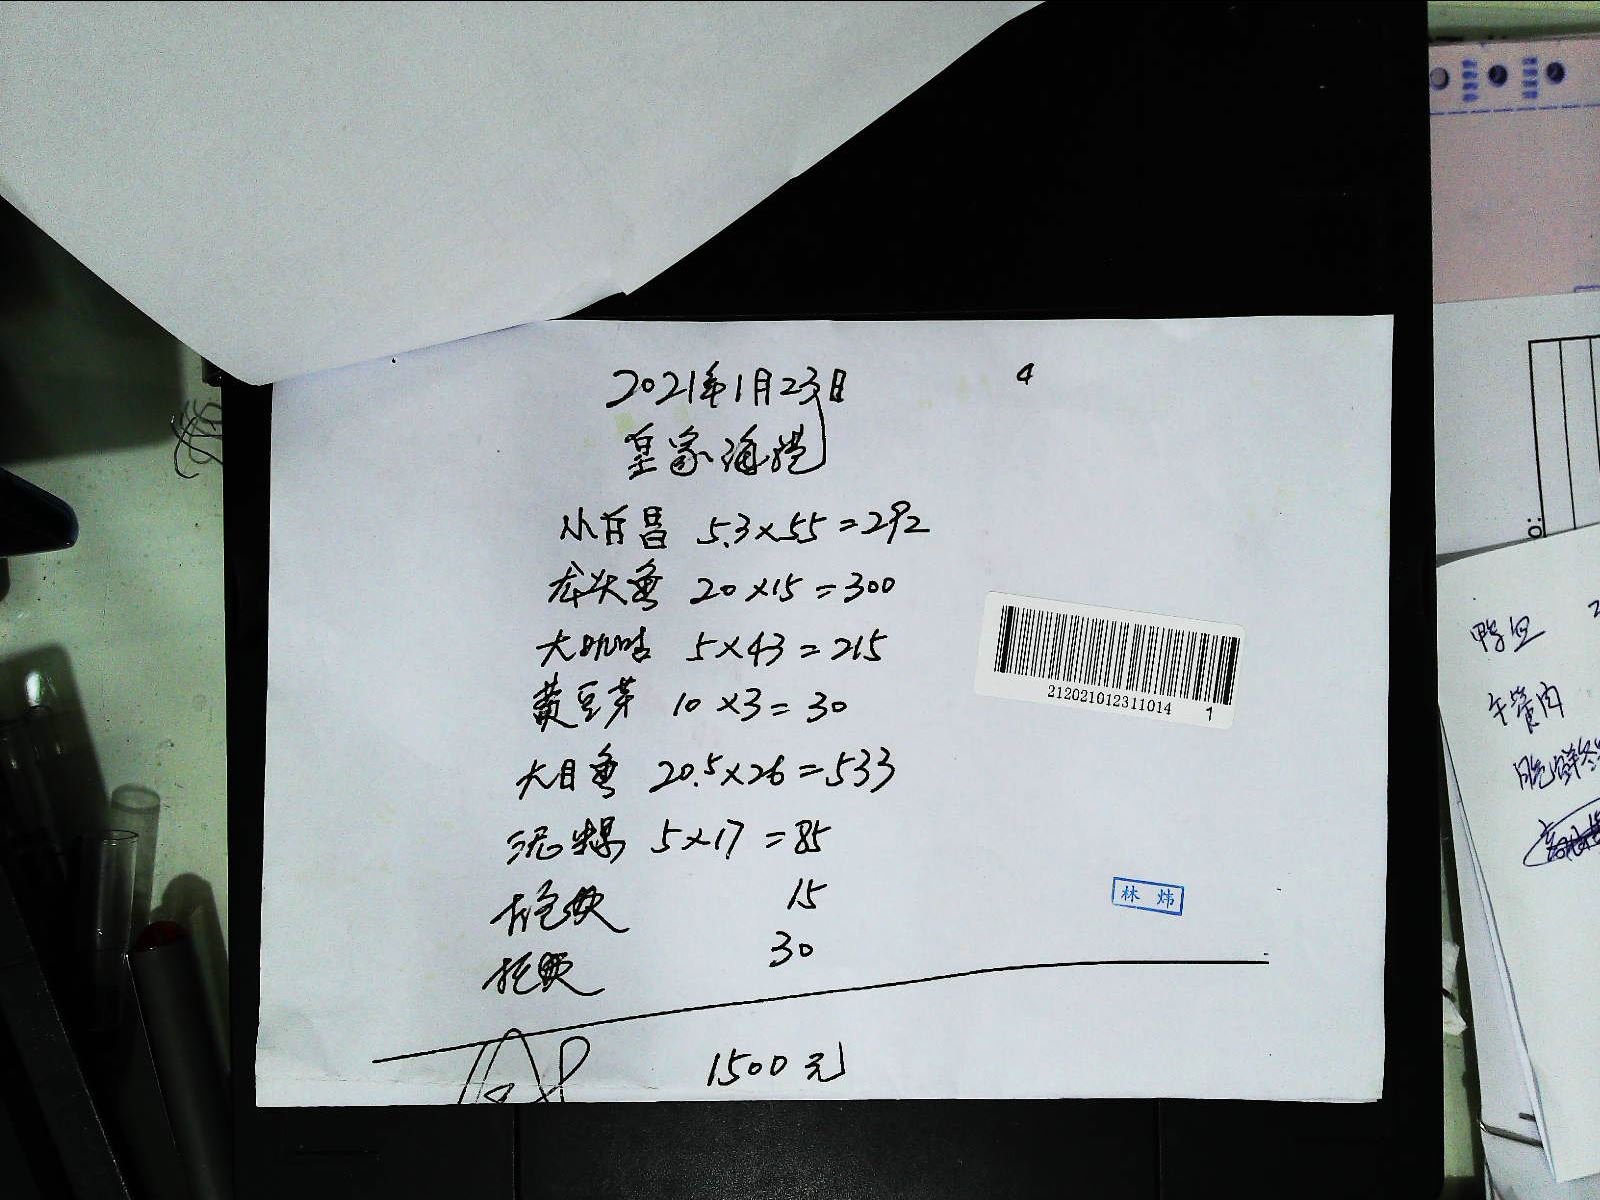 2021年1月23日
4
皇家海港
小白昌 5.3×55=292
龙头鱼 20×15=300
大叽咕 5×43=215
黄豆芽 10×3=30
大目鱼 20.5×26=533
泥螺 5×17=85
15
30
1500元
212021012311014 1
林炜
鸭血
牛蒡肉